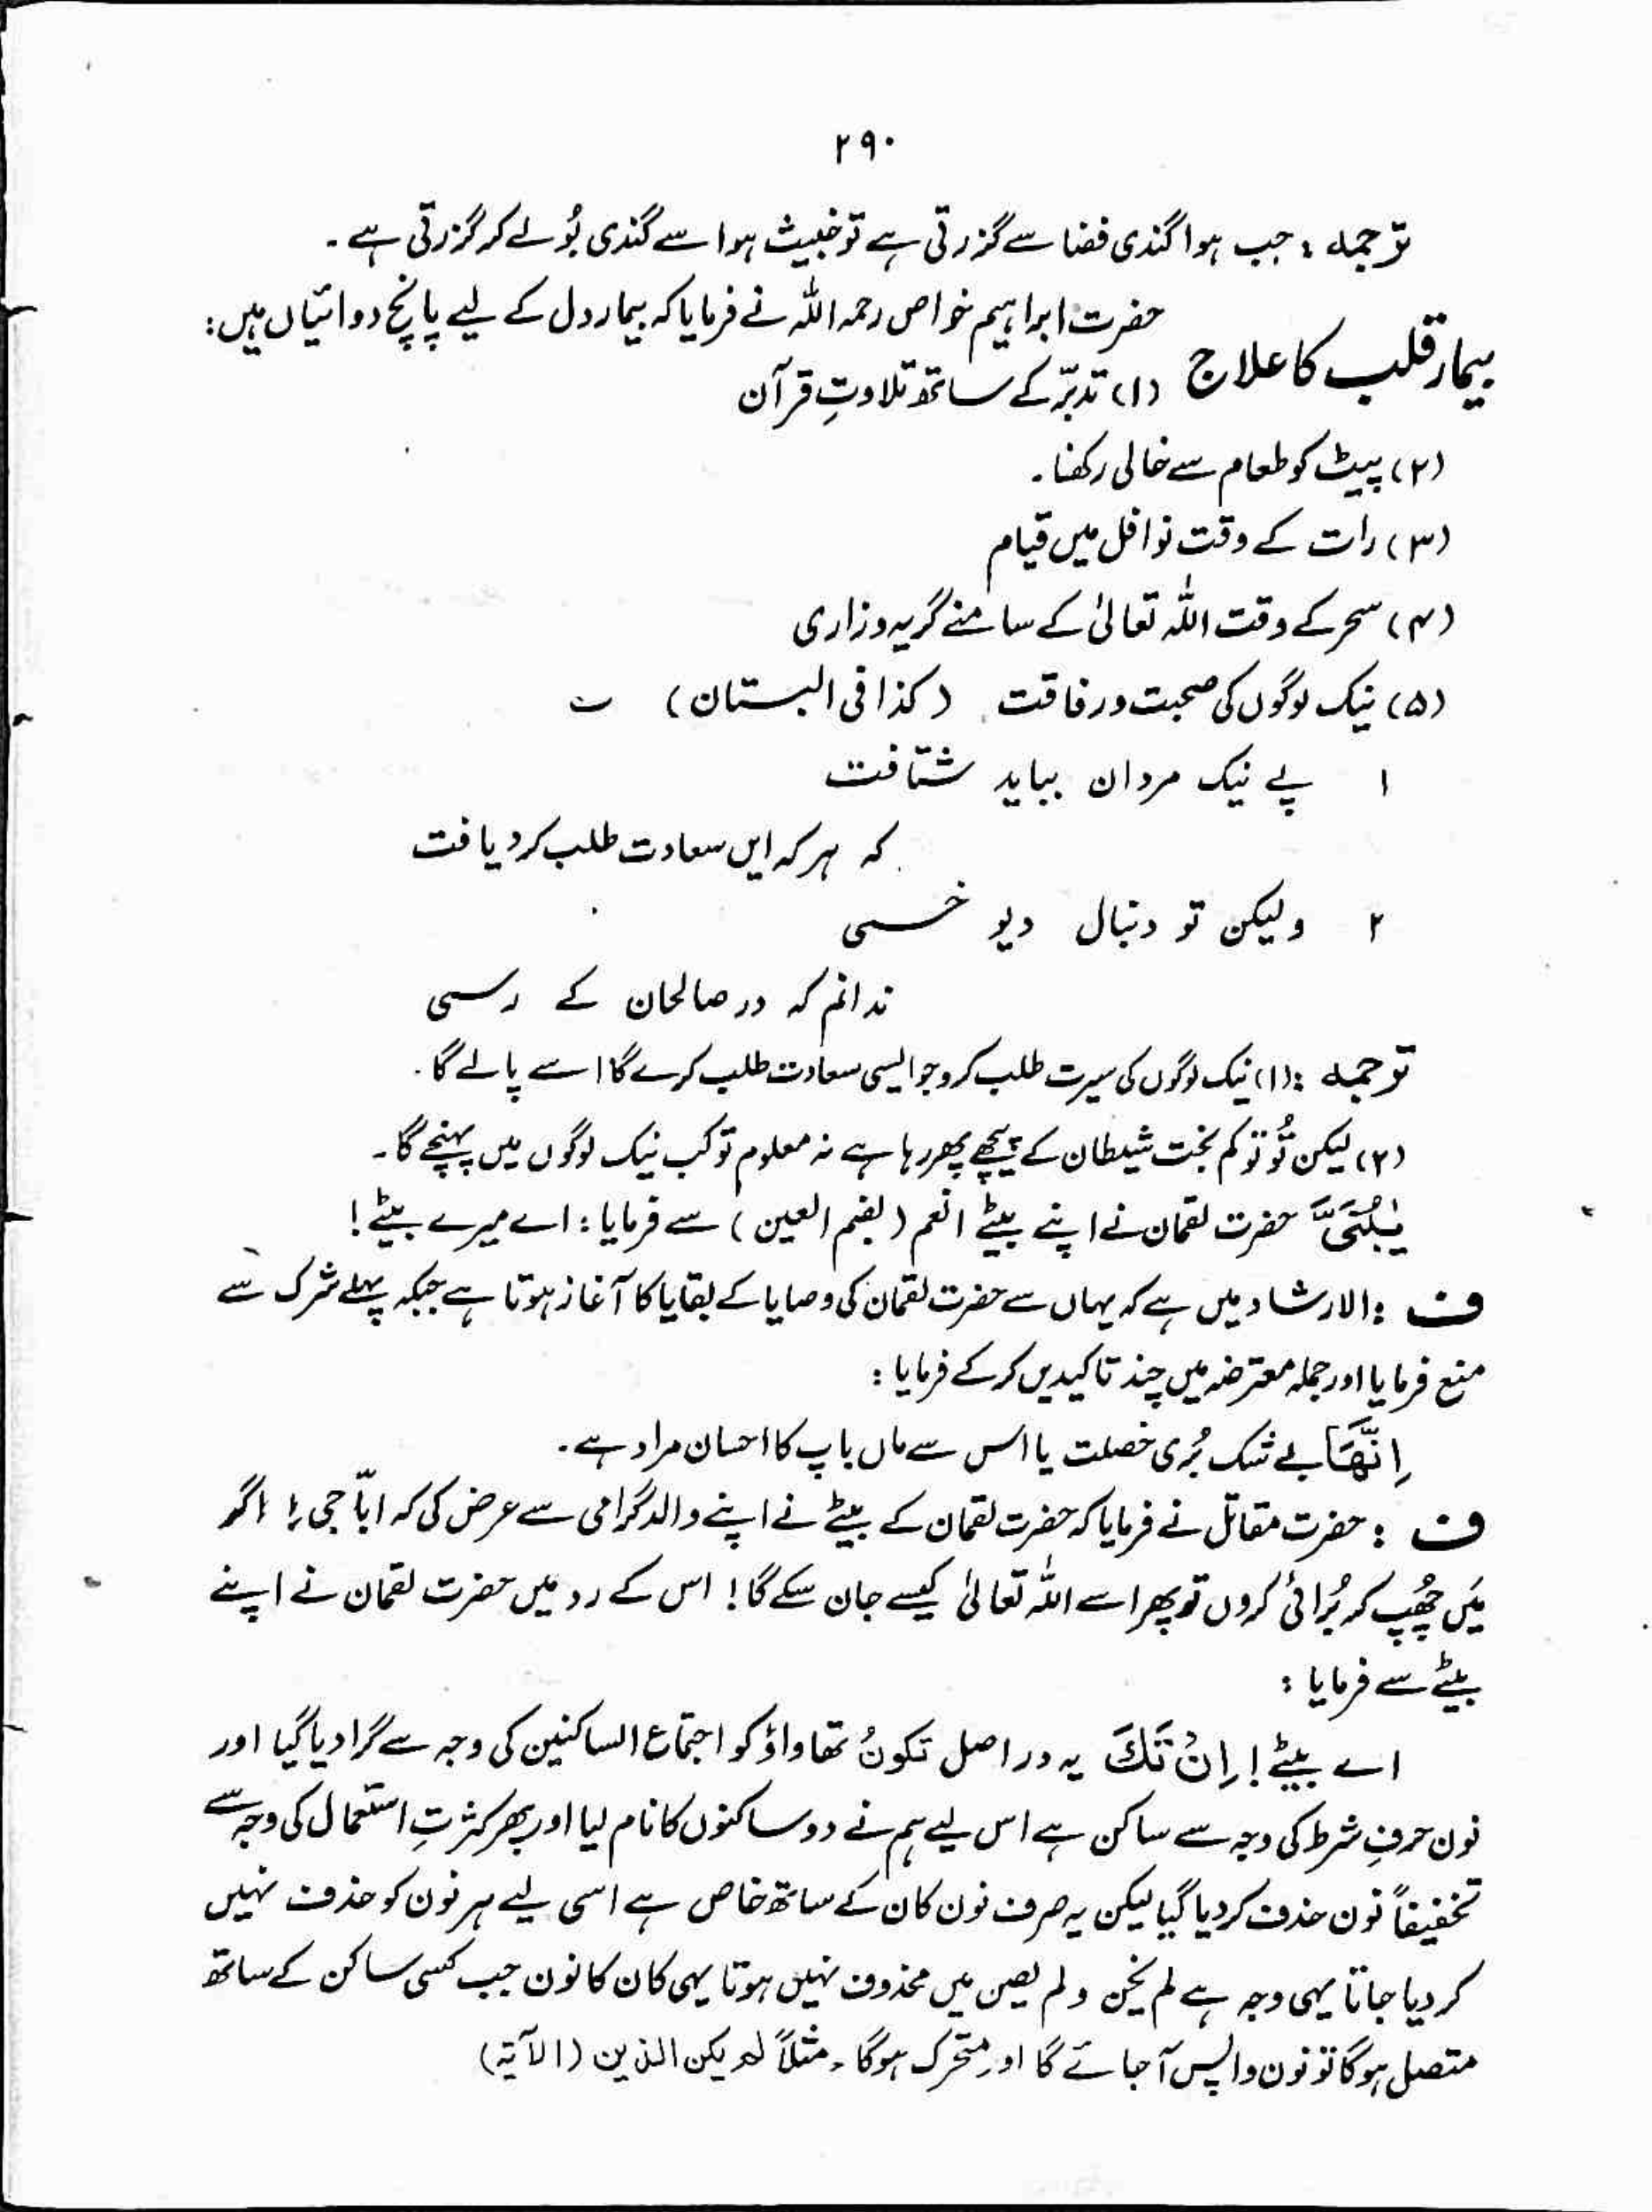 ۲۹۰
ترجمہ : جب ہوا گندی فضا سے گزرتی ہے تو خبیث ہوا سے گندی بُو لے کر گزرتی ہے۔
حضرت ابراہیم خواص رحمہ اللہ نے فرمایا کہ بیمار دل کے لیے پانچ دوائیاں ہیں:
بیمار قلب کا علاج
(۱) تدبّر کے ساتھ تلاوتِ قرآن
(۲) پیٹ کو طعام سے خالی رکھنا۔
(۳) رات کے وقت نوافل میں قیام
(۴) سحر کے وقت اللہ تعالیٰ کے سامنے گریہ وزاری
(۵) نیک لوگوں کی صحبت و رفاقت (کذا فی البستان) ؎
۱ پے نیک مردان بباید شتافت
کہ ہر کہ ایں سعادت طلب کرد یافت
۲ ولیکن تو دنبال دیو خسی
ندانم کہ در صالحان کے رسی
ترجمہ : (۱) نیک لوگوں کی سیرت طلب کرو جو ایسی سعادت طلب کرے گا اسے پالے گا۔
(۲) لیکن تُو تو کم بخت شیطان کے پیچھے پھر رہا ہے نہ معلوم تو کب نیک لوگوں میں پہنچے گا۔
یٰبُنَیَّ حضرت لقمان نے اپنے بیٹے انعم (بضم العین) سے فرمایا : اے میرے بیٹے!
ف : الارشاد میں ہے کہ یہاں سے حضرت لقمان کی وصایا کے بقایا کا آغاز ہوتا ہے جبکہ پہلے شرک سے
منع فرمایا اور جملہ معترضہ میں چند تاکیدیں کر کے فرمایا :
اِنَّھَآ بے شک بُری خصلت یا اس سے ماں باپ کا احسان مراد ہے۔
ف : حضرت مقاتل نے فرمایا کہ حضرت لقمان کے بیٹے نے اپنے والد گرامی سے عرض کی کہ ابّا جی! اگر
مَیں چُھپ کر بُرائی کروں تو پھر اسے اللہ تعالیٰ کیسے جان سکے گا! اس کے رد میں حضرت لقمان نے اپنے
بیٹے سے فرمایا :
اے بیٹے! اِنْ تَکُ یہ دراصل تکونُ تھا واؤ کو اجتماع الساکنین کی وجہ سے گرا دیا گیا اور
نون حرفِ شرط کی وجہ سے ساکن ہے اس لیے ہم نے دو ساکنوں کا نام لیا اور پھر کثرتِ استعمال کی وجہ سے
تخفیفاً نون حذف کر دیا گیا لیکن یہ صرف نون کان کے ساتھ خاص ہے اسی لیے ہر نون کو حذف نہیں
کر دیا جاتا یہی وجہ ہے لم یخن و لم یصن میں محذوف نہیں ہوتا یہی کان کا نون جب کسی ساکن کے ساتھ
متصل ہوگا تو نون واپس آ جائے گا اور متحرک ہوگا، مثلاً لم یکن الذین (الآیۃ)